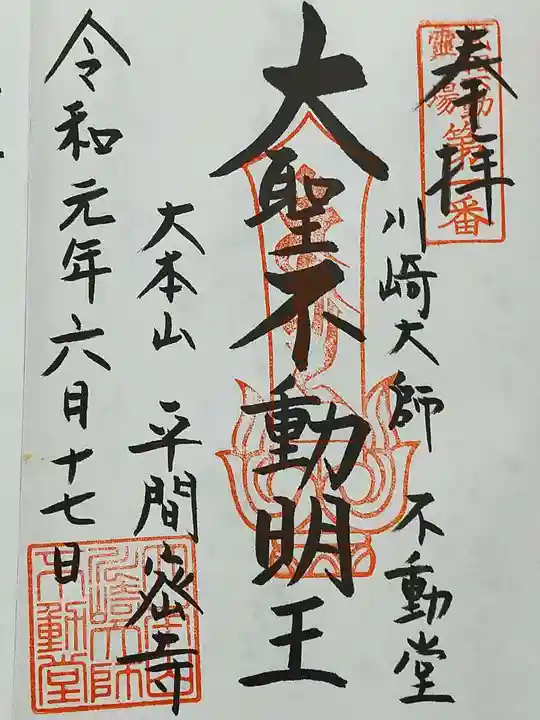 奉拝
川崎大師 不動堂
大聖不動明王
大本山 平間寺
令和元年六月十七日
第一番
不動堂